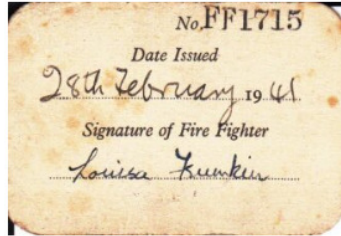 No. FF1715
Date Issued
28th February 1941
Signature of Fire Fighter
Louisa Frumkin